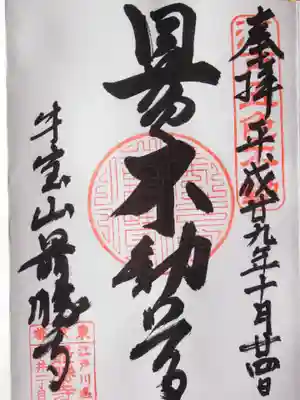 奉拝 平成廿九年十月廿四日
目黄不動尊
牛宝山最勝寺